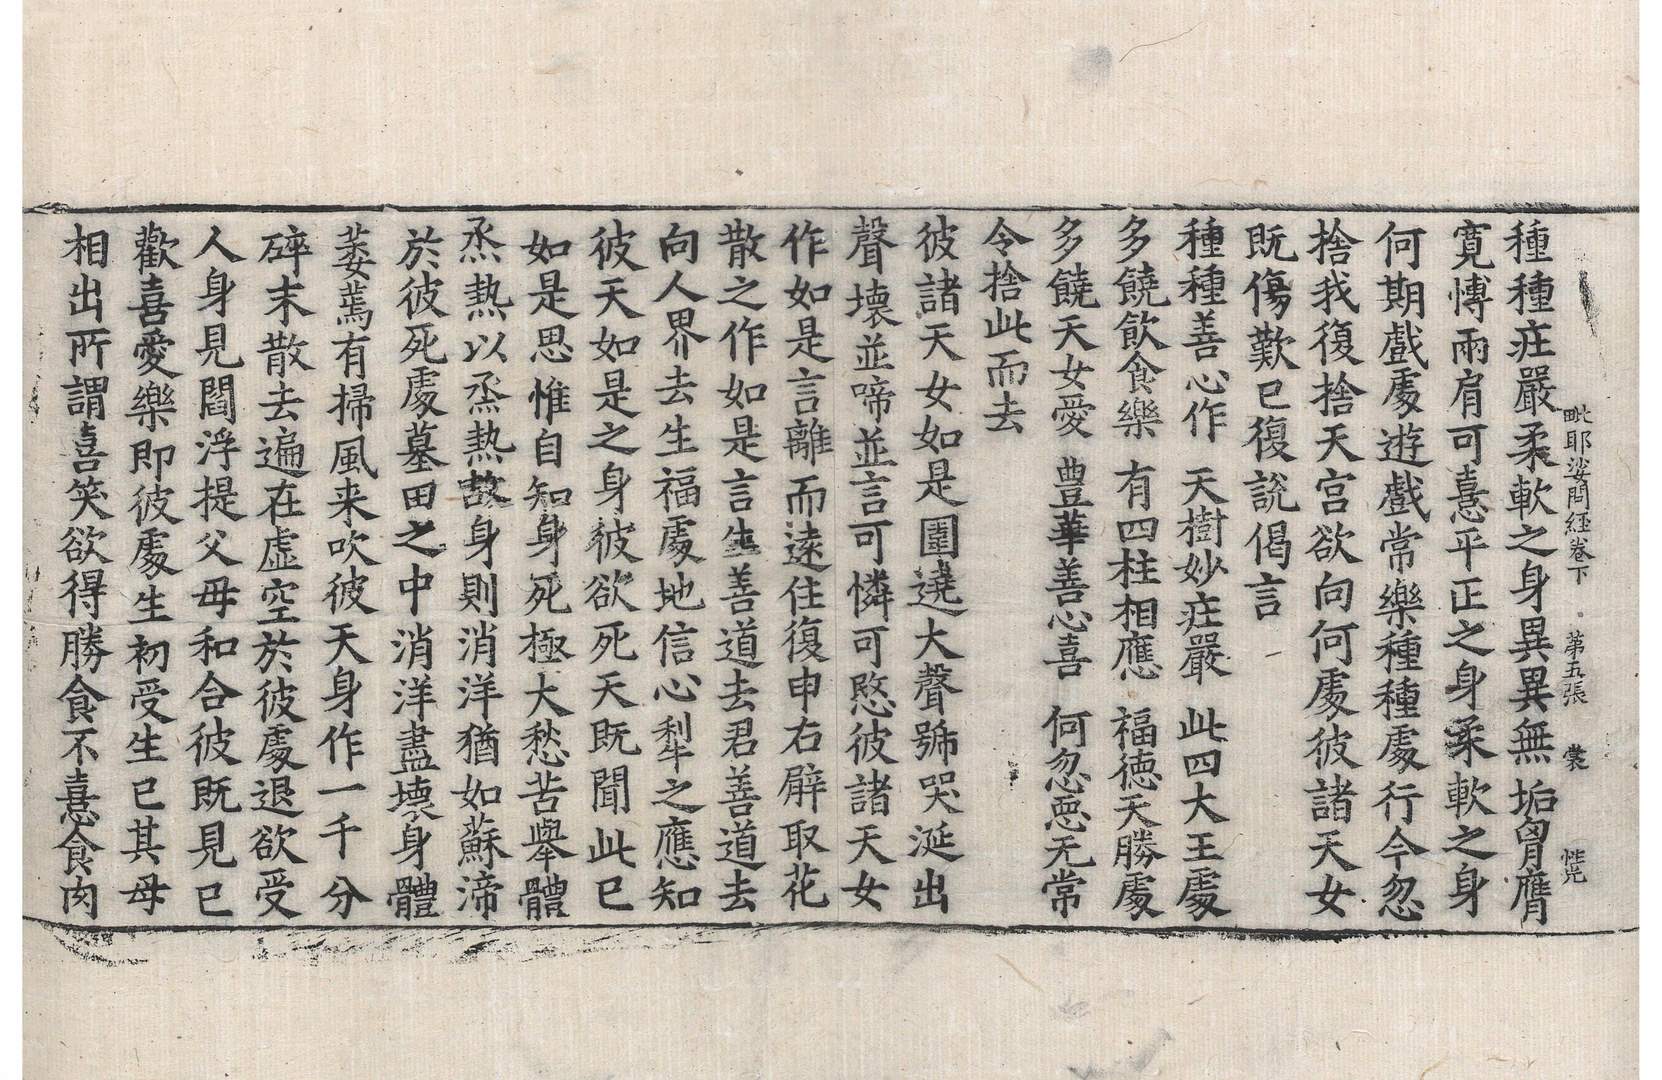 毗耶娑問經卷下　第五張　裳
種種庄嚴柔軟之身異異無垢胷膺
寛愽兩肩可憙平正之身柔軟之身
何期戲處遊戲常樂種種處行今忽
捨我復捨天宫欲向何處彼諸天女
既傷歎已復說偈言
種種善心作　天樹妙庄嚴　此四大王處
多饒飲食樂　有四柱相應　福德天勝處
多饒天女愛　豊華善心喜　何忽惡无常
令捨此而去
彼諸天女如是圍遶大聲號哭涎出
聲壞並啼並言可憐可愍彼諸天女
作如是言離而遠住復申右臂取花
散之作如是言生善道去君善道去
向人界去生福處地信心犁之應知
彼天如是之身彼欲死天既聞此已
如是思惟自知身死極大愁苦舉體
烝熱以烝熱故身則消洋猶如蘇渧
於彼死處墓田之中消洋盡壞身體
萎蔫有掃風来吹彼天身作一千分
碎末散去遍在虚空於彼處退欲受
人身見閻浮提父母和合彼既見已
歡喜愛樂即彼處生初受生已其母
相出所謂喜笑欲得勝食不憙食肉